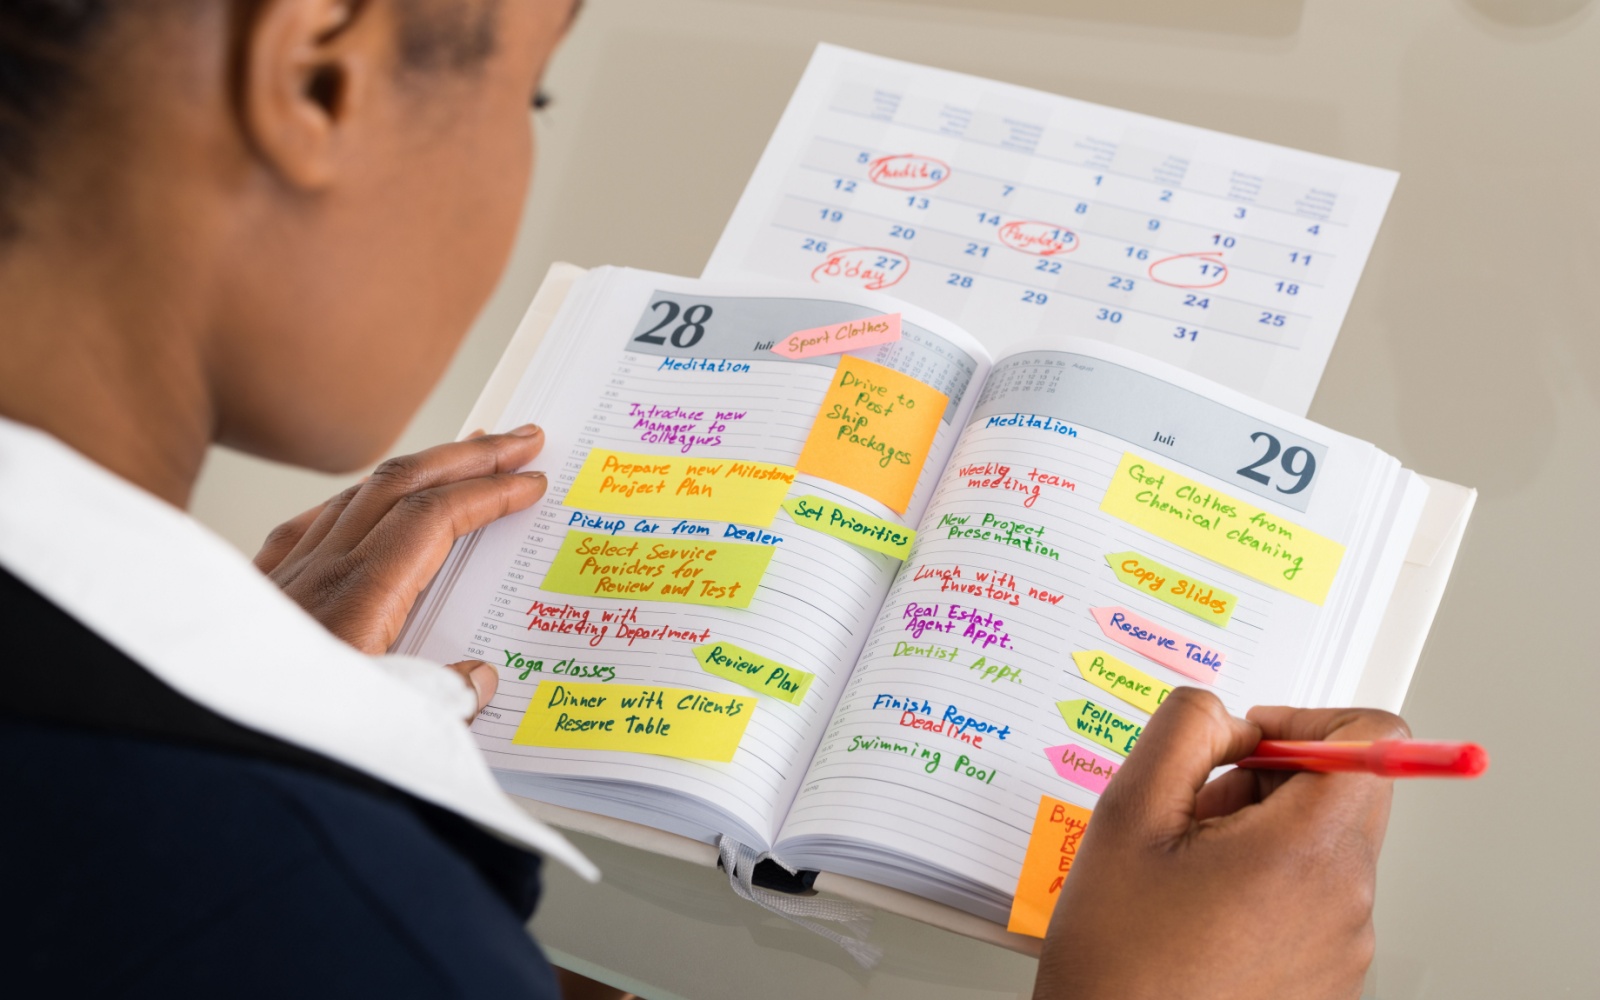 5 Audit 6 7 1 2 3 4
12 13 14 8 9 10 11
19 20 21 Payday 15 16 17 18
26 B'day 27 28 22 23 24 25
29 30 31
28
Juli
Sport Clothes
Meditation
Drive to
Post
Ship
Packages
Introduce new
Manager to
Colleagues
Prepare new Milestone
Project Plan
Set Priorities
Pickup Car from Dealer
Select Service
Providers for
Review and Test
Meeting with
Marketing Department
Review Plan
Yoga Classes
Dinner with Clients
Reserve Table
August
Juli
29
Meditation
Weekly team
meeting
Get Clothes from
Chemical cleaning
New Project
Presentation
Copy Slides
Lunch with new
Investors
Reserve Table
Real Estate
Agent Appt.
Dentist Appt.
Prepare
Follow
with
Finish Report
Deadline
Swimming Pool